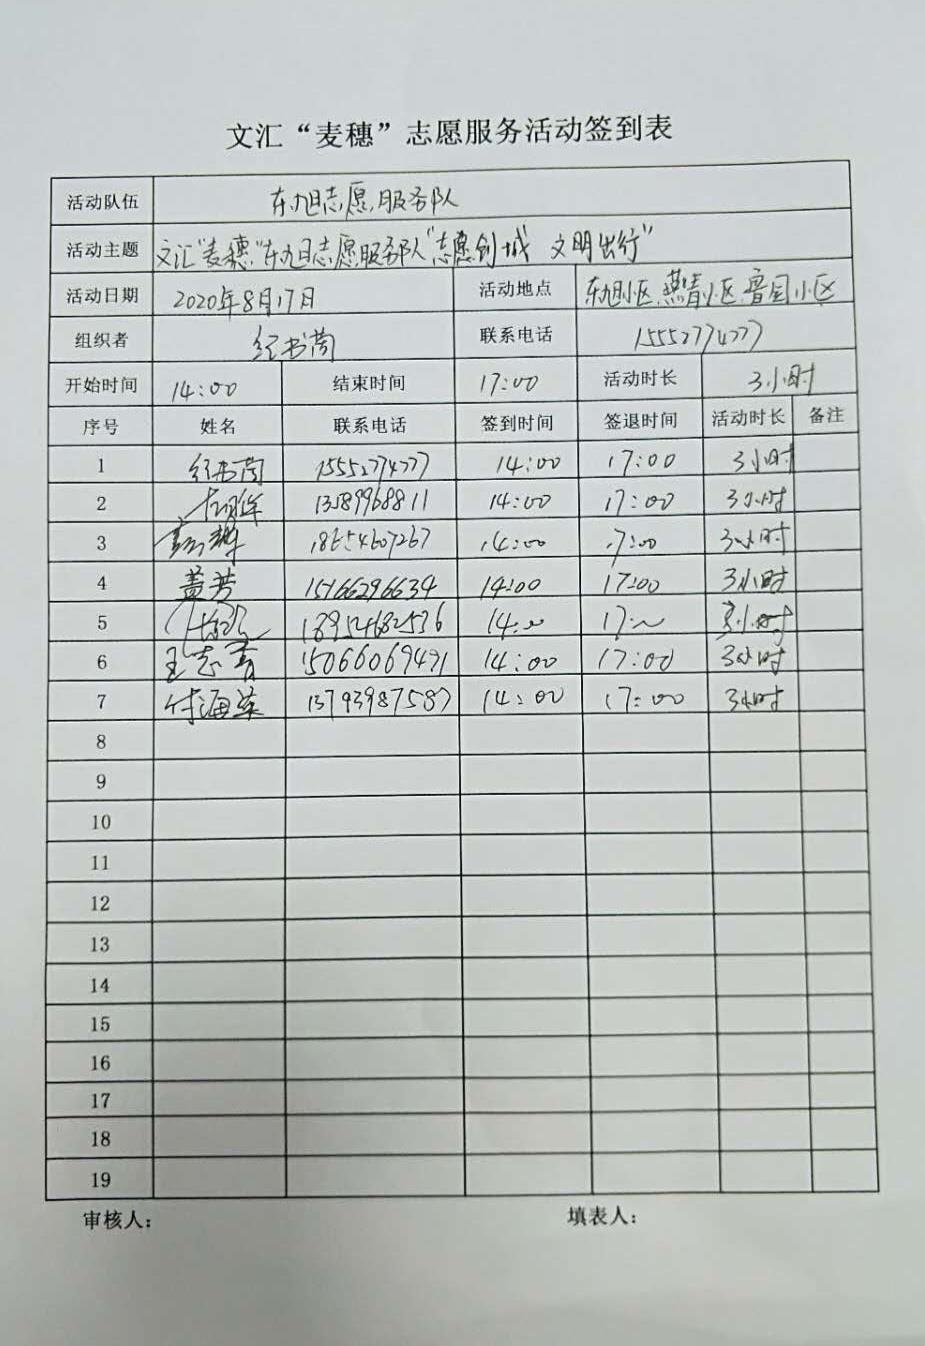 文汇“麦穗”志愿服务活动签到表
活动队伍 东旭志愿服务队
活动主题 文汇“麦穗”东旭志愿服务队“志愿创城 文明出行”
活动日期 2020年8月17日 活动地点 东旭小区.燕青小区.晋园小区
组织者 书茼 联系电话 15552774777
开始时间 14:00 结束时间 17:00 活动时长 3小时
序号 姓名 联系电话 签到时间 签退时间 活动时长 备注
1 书茼 15552774777 14:00 17:00 3小时
2 13589968811 14:00 17:00 3小时
3 18654607267 14:00 17:00 3小时
4 盖芳 15166296634 14:00 17:00 3小时
5 18954682536 14:00 17:00 3小时
6 王志青 15066069491 14:00 17:00 3小时
7 付海英 13793987587 14:00 17:00 3小时
8
9
10
11
12
13
14
15
16
17
18
19
审核人： 填表人：